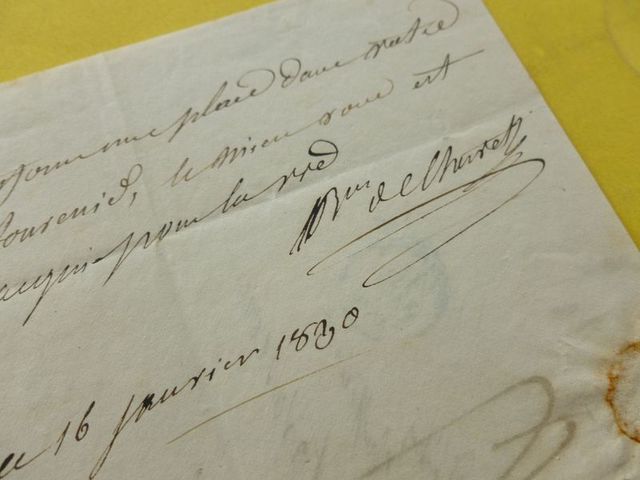 une place dans votre
souvenir, le mien vous est
acquis pour la vie
de Charette
le 16 janvier 1830